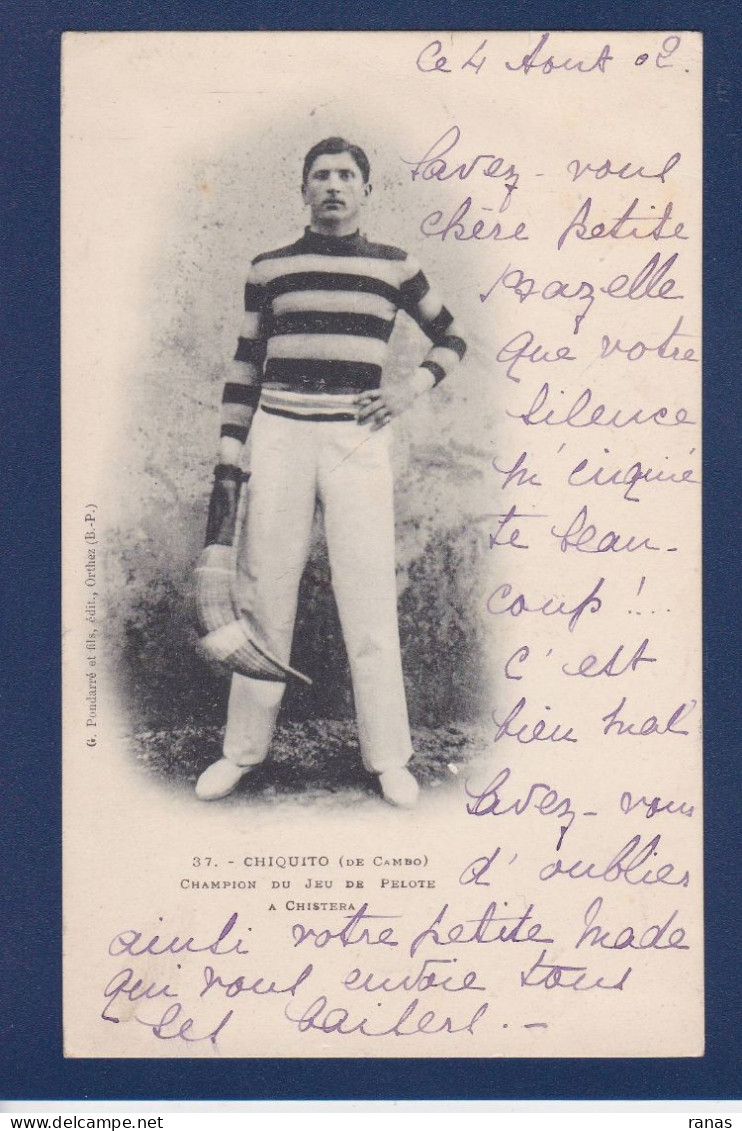 Ce 4 Aout 02.
Savez-vous
chère petite
gazelle
que votre
silence
m'inquiè
te beau-
coup !...
C'est
bien mal
Savez-vous
d'oublier
ainsi votre petite Made
qui vous envoie tous
ses baisers. -
37. - CHIQUITO (DE CAMBO)
CHAMPION DU JEU DE PELOTE
A CHISTERA
G. Pondarré et fils, édit., Orthez (B.-P.)
ranas